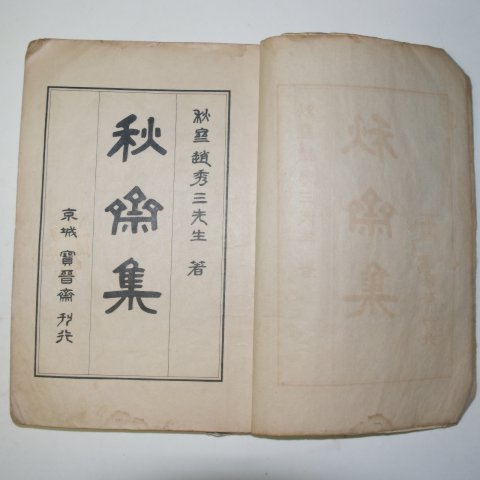 秋齋趙秀三先生 著
秋齋集
京城 寶晉齋 刊行